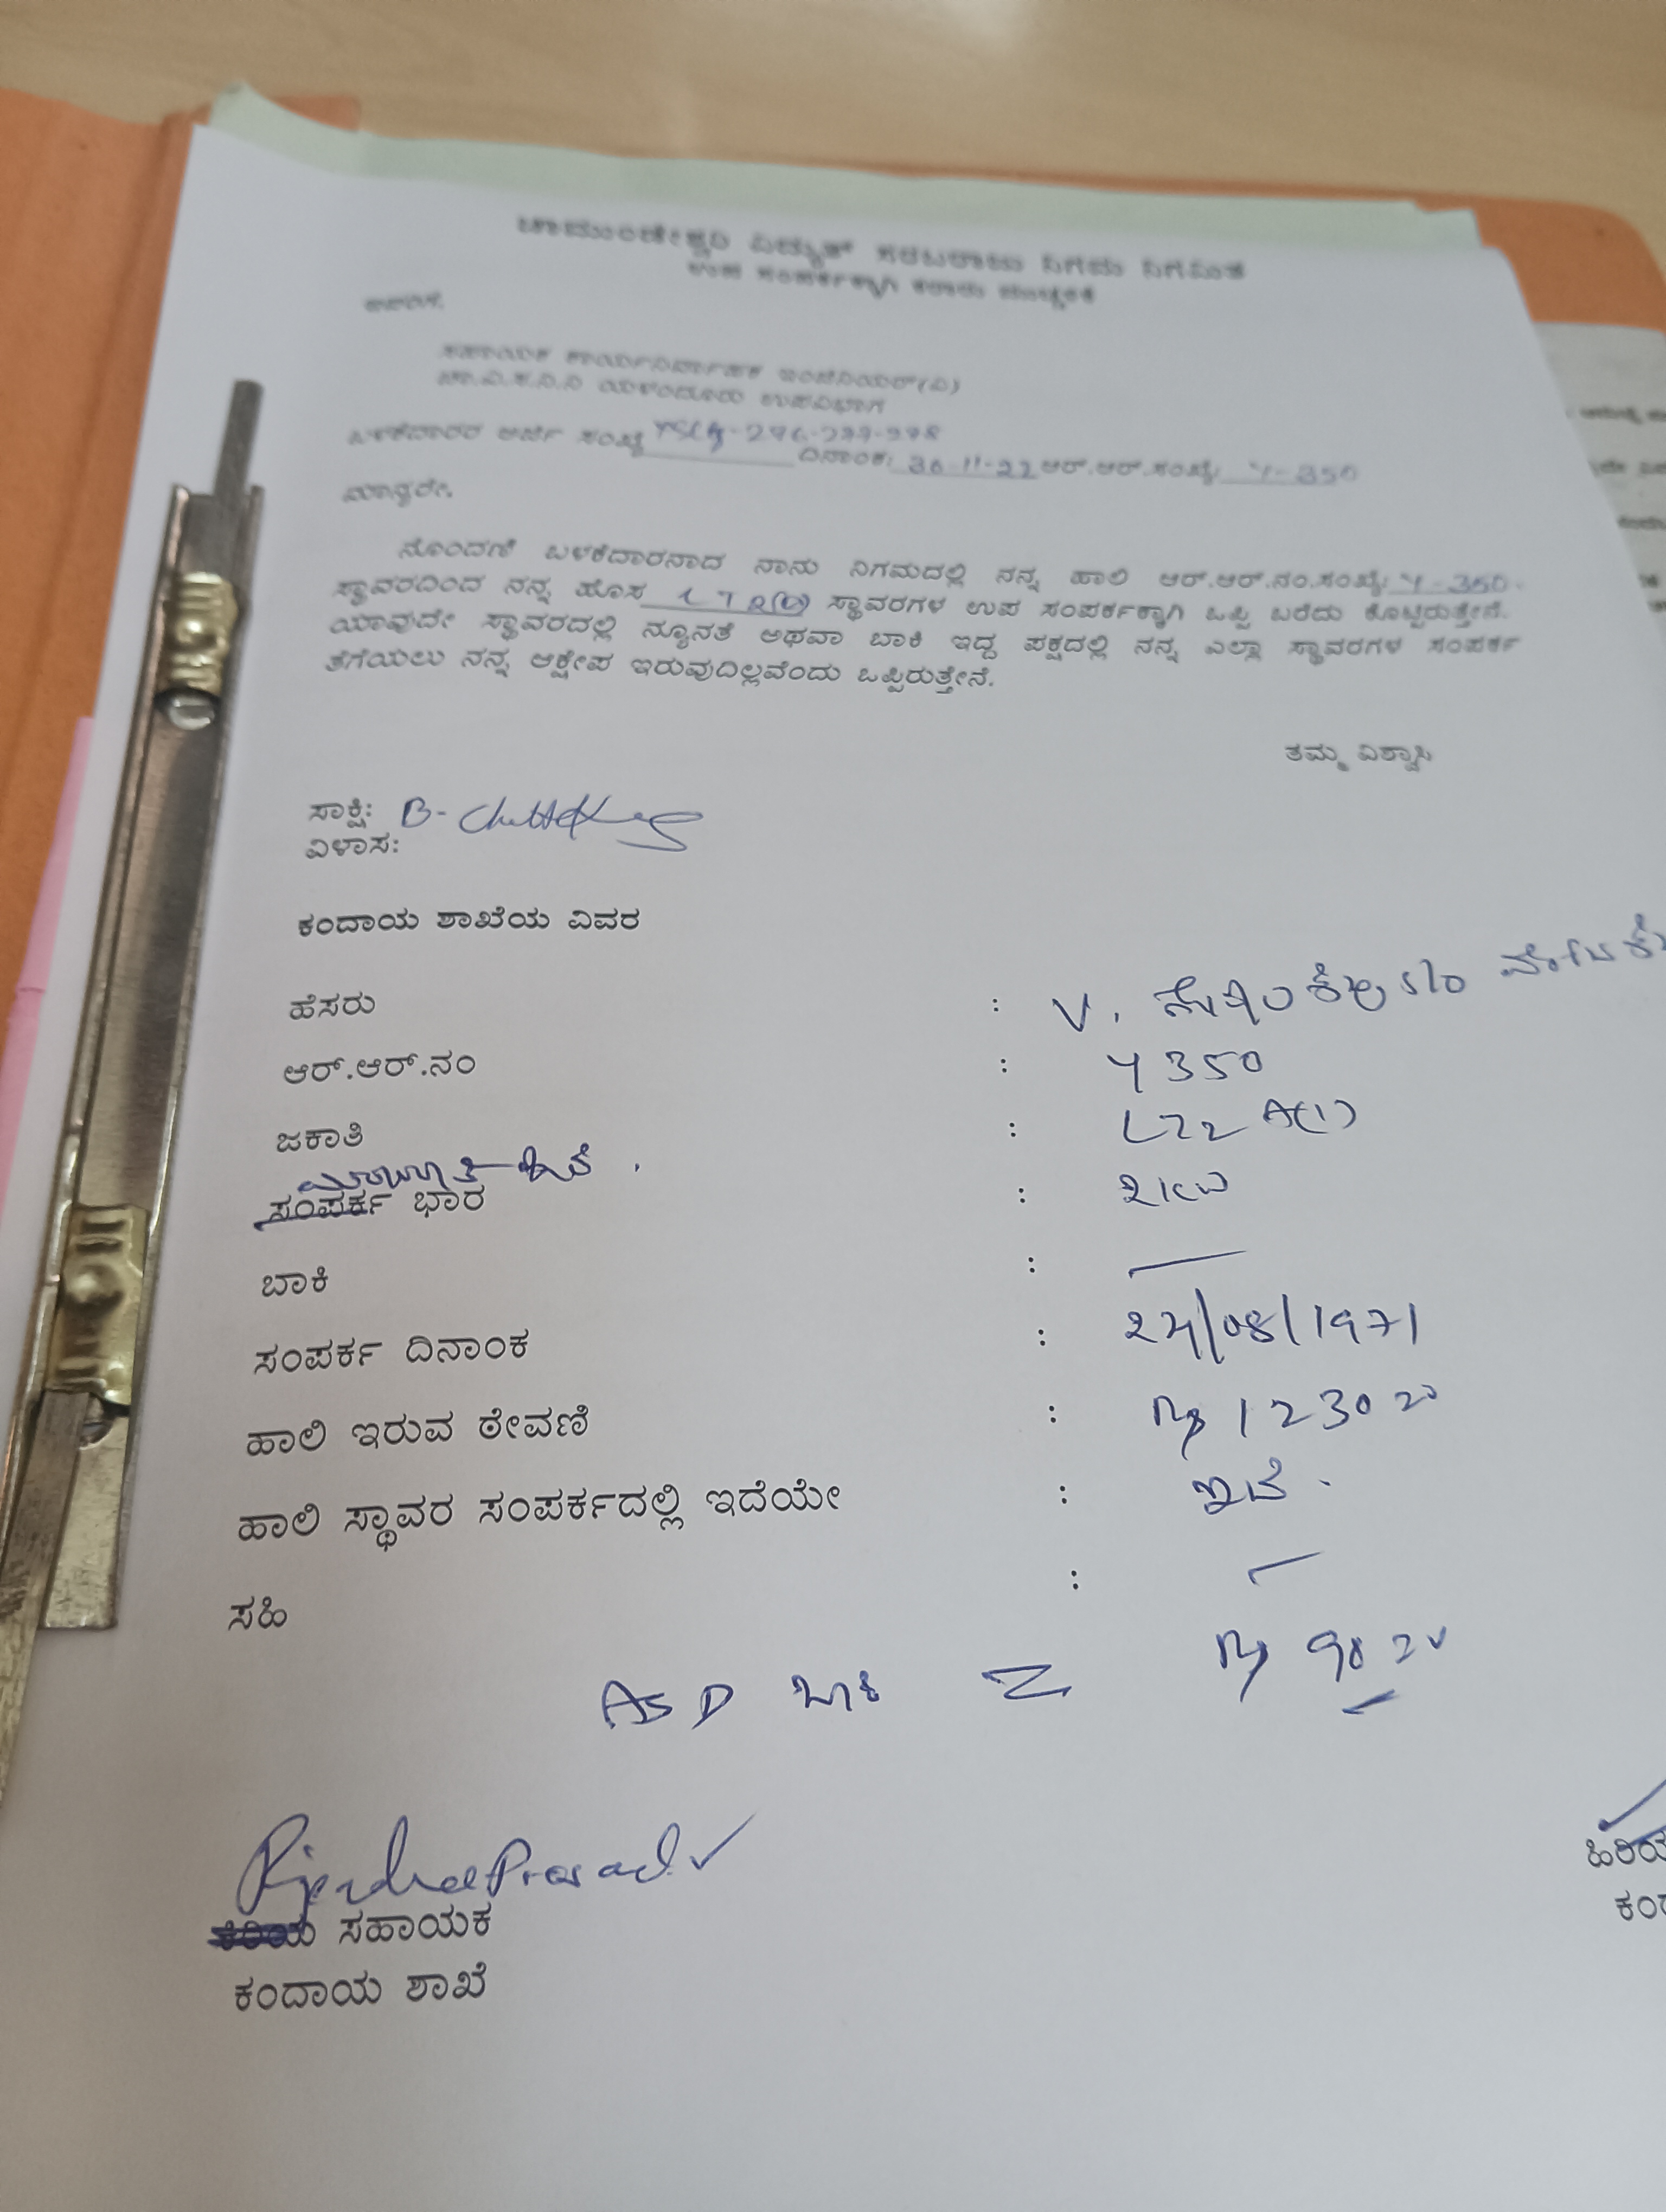 ಚಾಮುಂಡೇಶ್ವರಿ ವಿದ್ಯುತ್ ಸರಬರಾಜು ನಿಗಮ ನಿಗಮಿತ
ಉಪ ಸಂಪರ್ಕಕ್ಕಾಗಿ ಕರಾರು ಮುಚ್ಚಳಿಕೆ
ಇವರಿಗೆ.
ಸಹಾಯಕ ಕಾರ್ಯನಿರ್ವಾಹಕ ಇಂಜಿನಿಯರ್(ವಿ)
ಚಾ.ವಿ.ಸ.ನಿ.ನಿ ಯಳಂದೂರು ಉಪವಿಭಾಗ
ಬಳಕೆದಾರರ ಅರ್ಜಿ ಸಂಖ್ಯೆ ದಿನಾಂಕ: 30-11-22 ಆರ್.ಆರ್.ಸಂಖ್ಯೆ: Y-350
ಮಾನ್ಯರೇ,
ನೊಂದಣಿ ಬಳಕೆದಾರನಾದ ನಾನು ನಿಗಮದಲ್ಲಿ ನನ್ನ ಹಾಲಿ ಆರ್.ಆರ್.ನಂ.ಸಂಖ್ಯೆ: Y-350.
ಸ್ಥಾವರದಿಂದ ನನ್ನ ಹೊಸ ಸ್ಥಾವರಗಳ ಉಪ ಸಂಪರ್ಕಕ್ಕಾಗಿ ಒಪ್ಪಿ ಬರೆದು ಕೊಟ್ಟಿರುತ್ತೇನೆ.
ಯಾವುದೇ ಸ್ಥಾವರದಲ್ಲಿ ನ್ಯೂನತೆ ಅಥವಾ ಬಾಕಿ ಇದ್ದ ಪಕ್ಷದಲ್ಲಿ ನನ್ನ ಎಲ್ಲಾ ಸ್ಥಾವರಗಳ ಸಂಪರ್ಕ
ತೆಗೆಯಲು ನನ್ನ ಆಕ್ಷೇಪ ಇರುವುದಿಲ್ಲವೆಂದು ಒಪ್ಪಿರುತ್ತೇನೆ.
ತಮ್ಮ ವಿಶ್ವಾಸಿ
ಸಾಕ್ಷಿ: B-
ವಿಳಾಸ:
ಕಂದಾಯ ಶಾಖೆಯ ವಿವರ
ಹೆಸರು : V. S/o
ಆರ್.ಆರ್.ನಂ : Y 350
ಜಕಾತಿ : LT2 A(1)
ಸಂಪರ್ಕ ಭಾರ : 2KW
ಬಾಕಿ : —
ಸಂಪರ್ಕ ದಿನಾಂಕ : 24/08/1971
ಹಾಲಿ ಇರುವ ಠೇವಣಿ : Rs 1230
ಹಾಲಿ ಸ್ಥಾವರ ಸಂಪರ್ಕದಲ್ಲಿ ಇದೆಯೇ : ಇದೆ.
ಸಹಿ : —
ASD ಬಾಕಿ = Rs 90
Rajendra Prasad
ಕಿರಿಯ ಸಹಾಯಕ
ಕಂದಾಯ ಶಾಖೆ
ಹಿರಿಯ
ಕಂದ